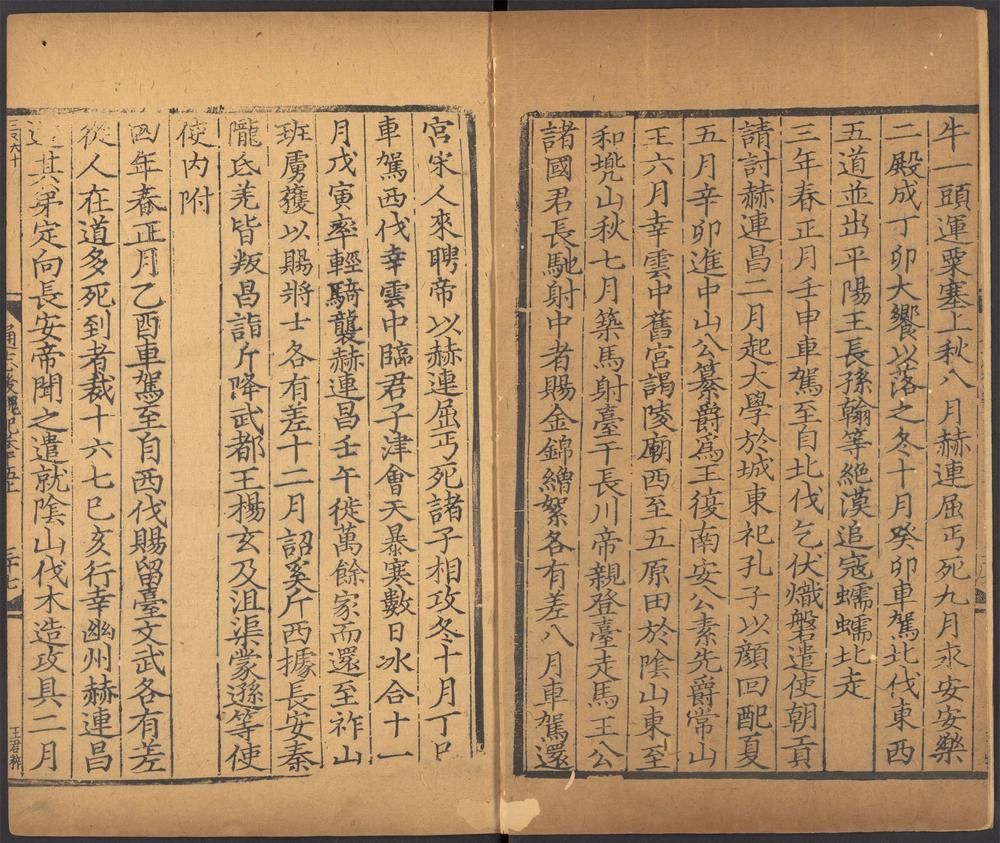 牛一頭運粟塞上秋八月赫連屈丐死九月求安安樂
二殿成丁卯大饗以落之冬十月癸卯車駕北伐東西
五道並出平陽王長孫翰等絶漠追寇蠕蠕北走
三年春正月壬申車駕至自北伐乞伏熾磐遣使朝貢
請討赫連昌二月起大學於城東祀孔子以顔回配夏
五月辛卯進中山公纂爵爲王復南安公素先爵常山
王六月幸雲中舊宮謁陵廟西至五原田於陰山東至
和兠山秋七月築馬射臺于長川帝親登臺走馬王公
諸國君長馳射中者賜金錦繒絮各有差八月車駕還
宮宋人來聘帝以赫連屈丐死諸子相攻冬十月丁巳
車駕西伐幸雲中臨君子津會天暴寒數日冰合十一
月戊寅率輕騎襲赫連昌壬午徙萬餘家而還至祚山
班虜獲以賜將士各有差十二月詔奚斤西據長安秦
隴氐羌皆叛昌詣斤降武都王楊玄及沮渠蒙遜等使
使内附
四年春正月乙酉車駕至自西伐賜留臺文武各有差
從人在道多死到者裁十六七己亥行幸幽州赫連昌
其弟定向長安帝聞之遣就陰山伐木造攻具二月
王君粹